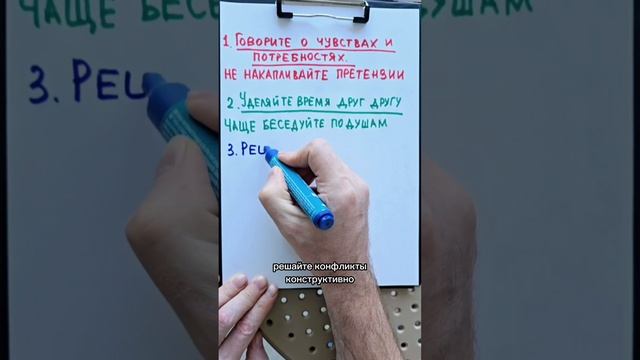 1. Говорите о чувствах и
потребностях.
не накапливайте претензии
2. Уделяйте время друг другу
чаще беседуйте по душам
3. Реш
решайте конфликты
конструктивно